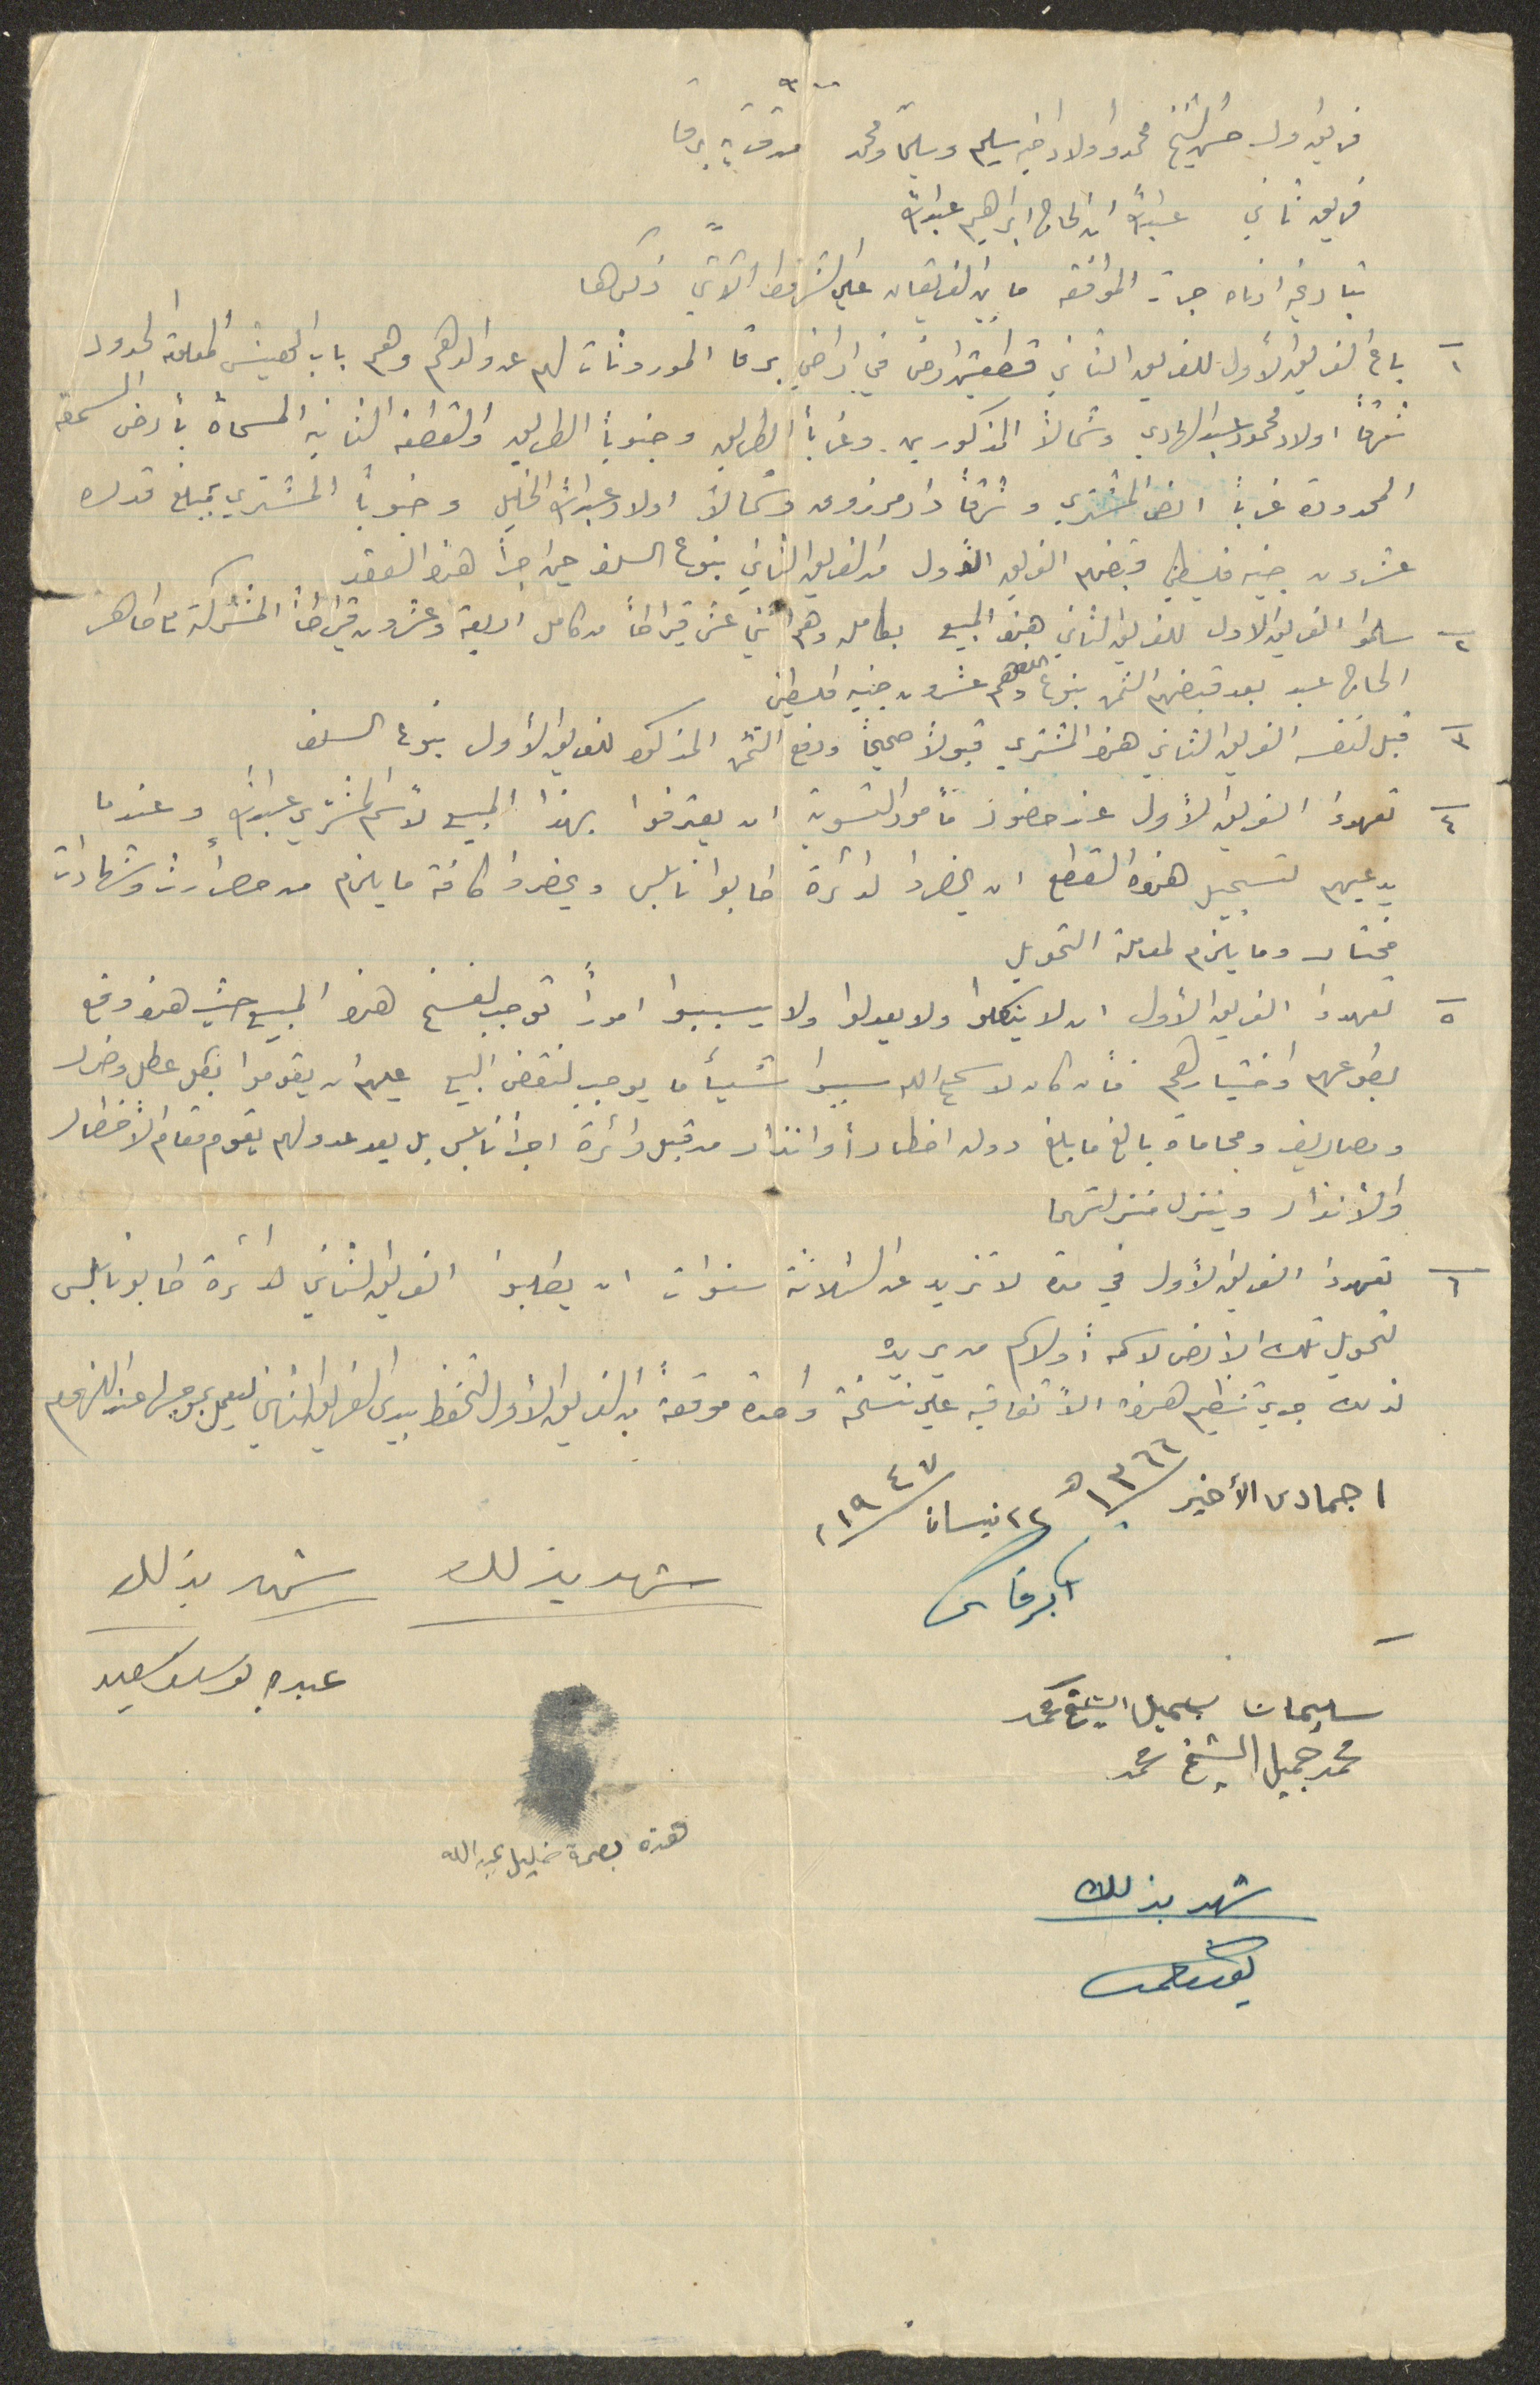 فريق اول حسن الشيخ محمد واولاد اخيه سليم وسليمان ومحمد من قرية برقا
فريق ثاني عبدالله ابن الحاج ابراهيم عبدالله
بتاريخ ادناه جرت الموافقه ما بين الفريقان على الشروط الآتي ذكرها
١ باع الفريق الأول للفريق الثاني قطعتين ارض في اراضي برقا الموروثات لهم عن والدهم وهم باب المعلومة الحدود
شرقاً اولاد محمود عبد الهادي وشمالاً المذكورين وغرباً الطريق وجنوباً الطريق والقطعه الثانيه المسماة بأرض
المحدودة غرباً ارض المشتري وشرقاً دار مرزوق وشمالاً اولاد عبدالله الخليل وجنوباً المشتري بمبلغ قدره
عشرون جنيه فلسطيني قبضهم الفريق الأول من الفريق الثاني بنوع السلف حين اجرأ هذه العقد
٢ سلموا الفريق الاول للفريق الثاني هذه المبيع بكامله وهم اثني عشر قيراطاً من كامل اربعة وعشرون قيراطاً المشتركة مع
الحاج عبد بعد قبضهم الثمن بنوع وهم عشرون جنيه فلسطيني
٣ قبل لنفسه الفريق الثاني هذه المشترى قبولاً صحيحاً ودفع الثمن المذكور للفريق الأول بنوع السلف
٤ تعهدوا الفريق الأول عند حضور مأمور التسوية ان يعترفوا بهذا المبيع لأسم المشتري عبدالله وعندما
يدعيهم لتسجيل هذه القطع ان يحضروا لدائرة طابو نابلس ويحضروا كافة ما يلزم من حصر أرث وشهادات
مختار وما يلزم لمعاملة التحويل
٥ تعهدوا الفريق الأول ان لا ينكلوا ولا يعدلوا ولا يسببوا اموراً توجب لفسخ هذه المبيع حيث هذه وقع
بطوعهم واختيارهم فأن كان لا سمح الله سببوا شيأً ما يوجب لنقض البيع عليهم ان يقوموا بكل عطل وضرر
ومصاريف ومحاماه بالغ ما بلغ دون اخطار أو انذار من قبل دائرة اجرأ نابلس بل يعد عدولهم يقوم مقام الأخطار
والأنذار وينزل منزلتهما
٦ تعهدوا الفريق الأول في مدة لا تزيد عن الثلاثة سنوات ان يطلبوا الفريق الثاني لدائرة طابو نابلس
لتحويل تلك الارض لاسمه أو لاسم من يريده
لذلك جرى تنظيم هذه الأتفاقيه على نسخة واحدة موقعة من الفريق الأول لتحفظ بيدي الفريق الثاني ليعمل بموجبها عند اللزوم
١ جمادى الأخير ١٣٦٦ هـ ٢٢ نيسان ١٩٤٧ م
شهد بذلك شهد بذلك
سليمان جميل الشيخ محمد
محمد جميل الشيخ محمد
هذه بصمة خليل عبد الله
شهد بذلك